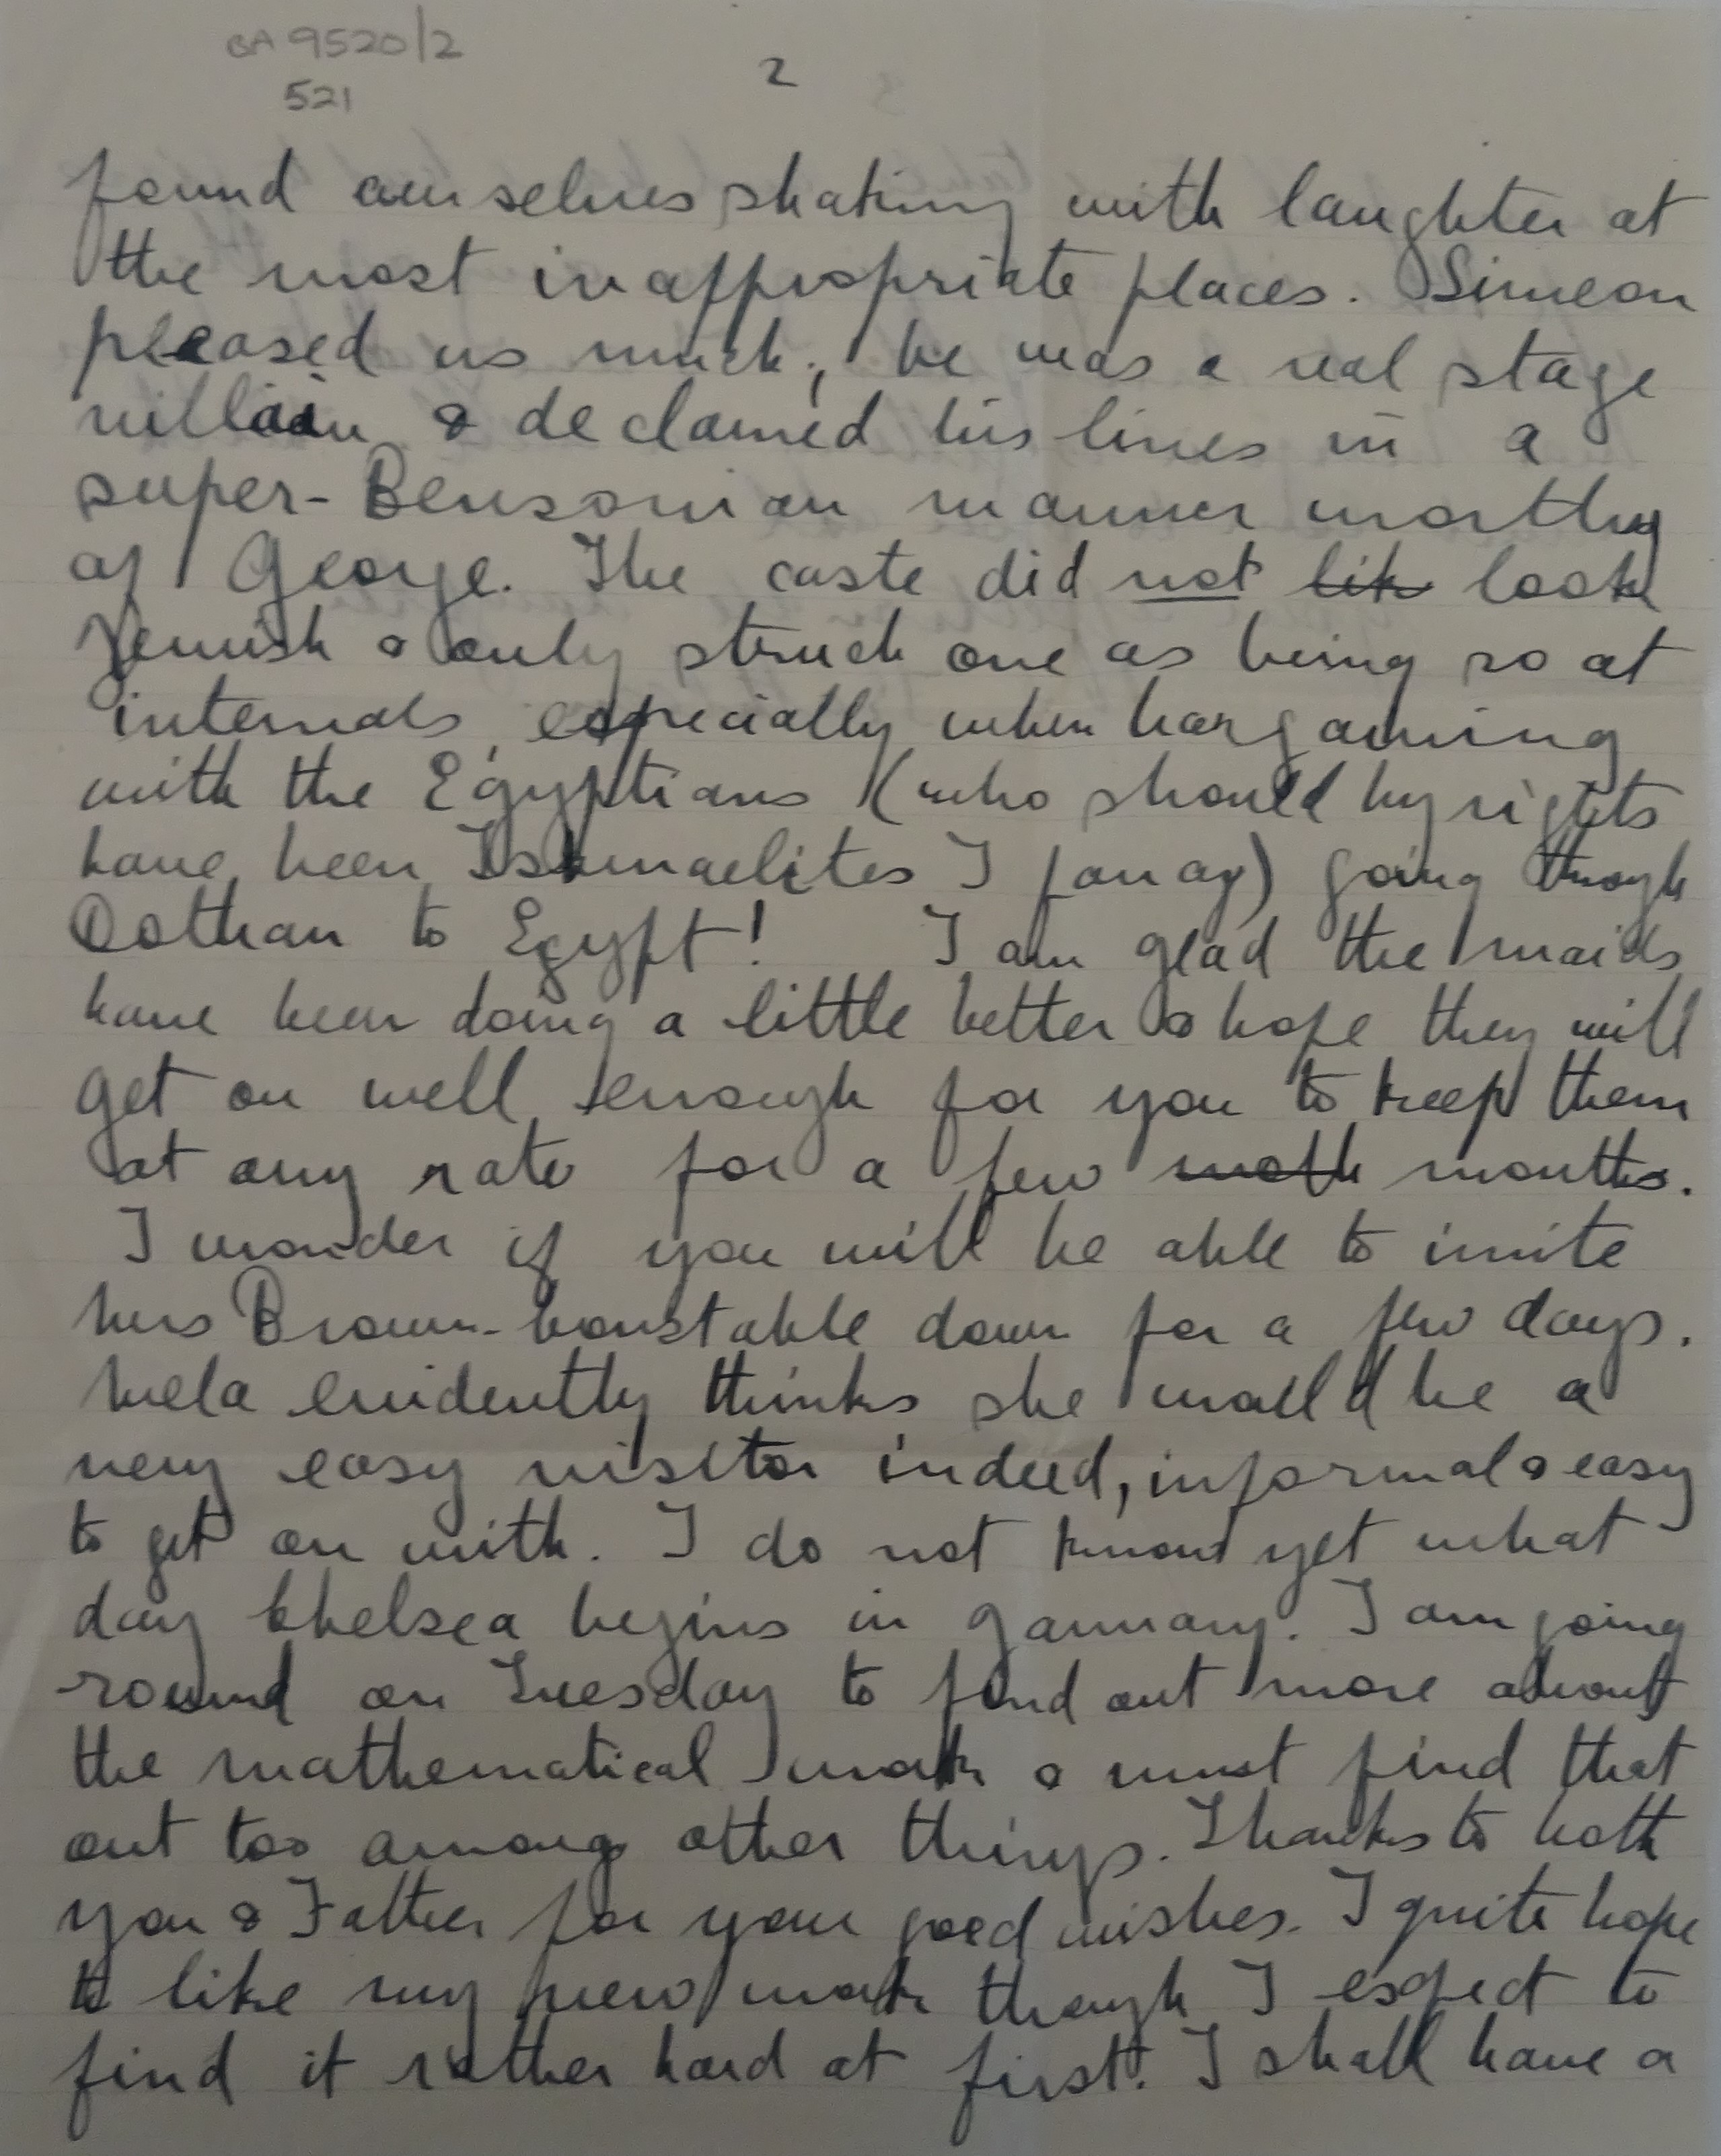 BA 9520/2
521
2
found ourselves shaking with laughter at
the most inappropriate places. Simeon
pleased us much; he was a real stage
villain & declaimed his lines in a
super-Bensonian manner worthy
of George. The caste did not lik look
Jewish & only struck one as being so at
intervals, especially when bargaining
with the Egyptians (who should by rights
have been Ishmaelites I fancy) going through
Dothan to Egypt! I am glad the maids
have been doing a little better & hope they will
get on well enough for you to keep them
at any rate for a few moth months.
I wonder if you will be able to invite
Mrs Brown-Constable down for a few days.
Mela evidently thinks she would be a
very easy visitor indeed, informal & easy
to get on with. I do not know yet what
day Chelsea begins in January. I am going
round on Tuesday to find out more about
the mathematical work & must find that
out too among other things. Thanks to both
you & Father for your good wishes. I quite hope
to like my new work though I expect to
find it rather hard at first. I shall have a